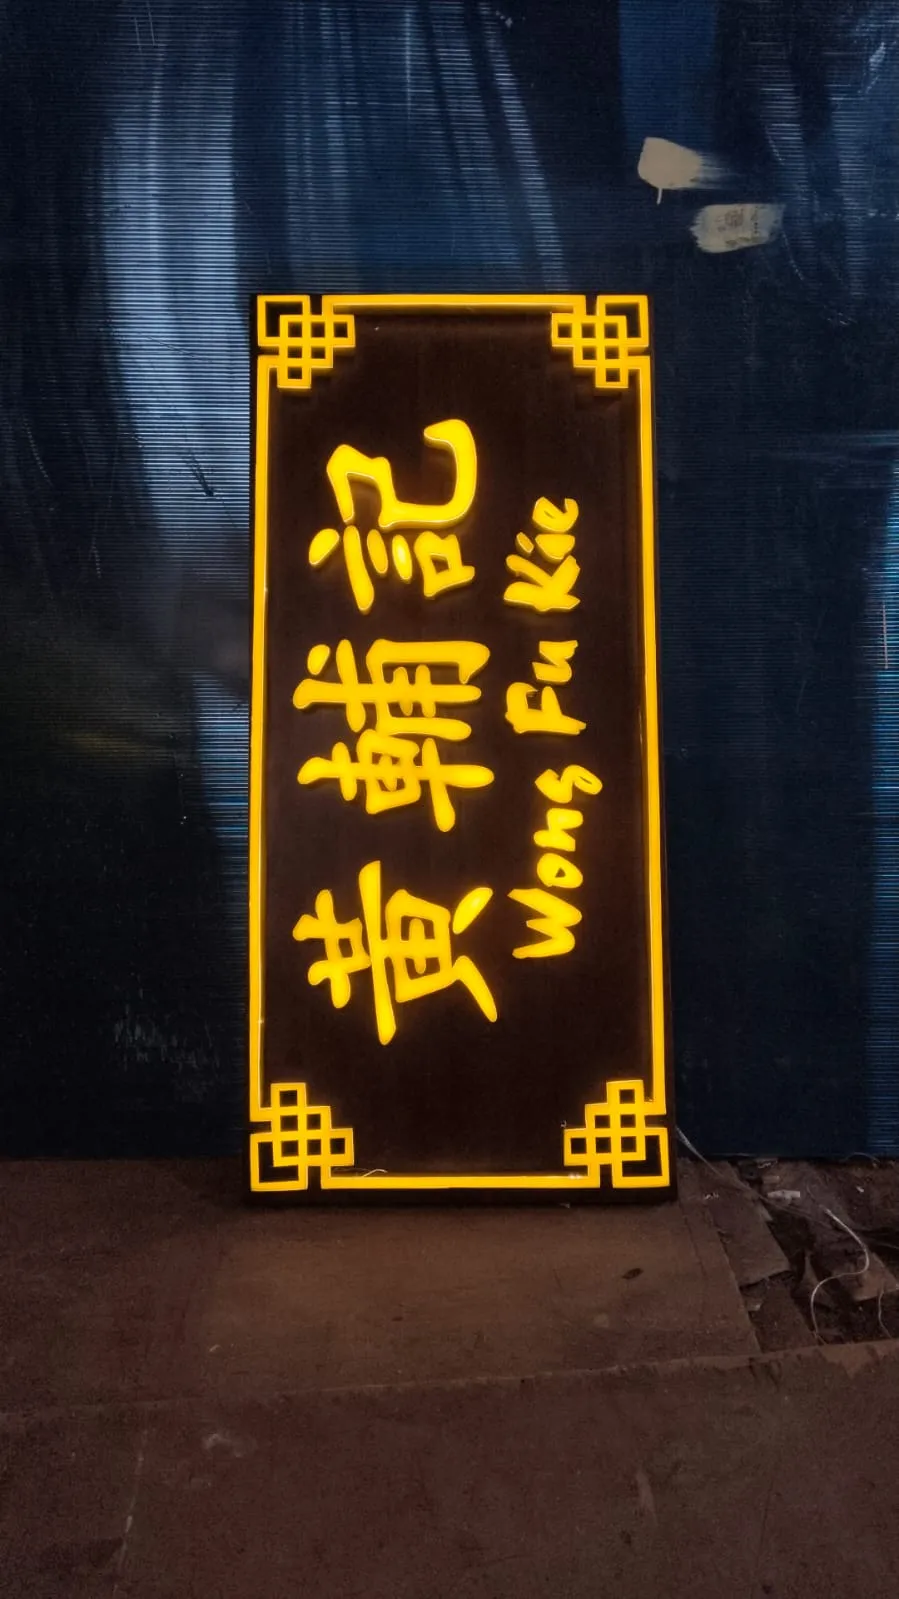 黄輔記
Wong Fu Kie